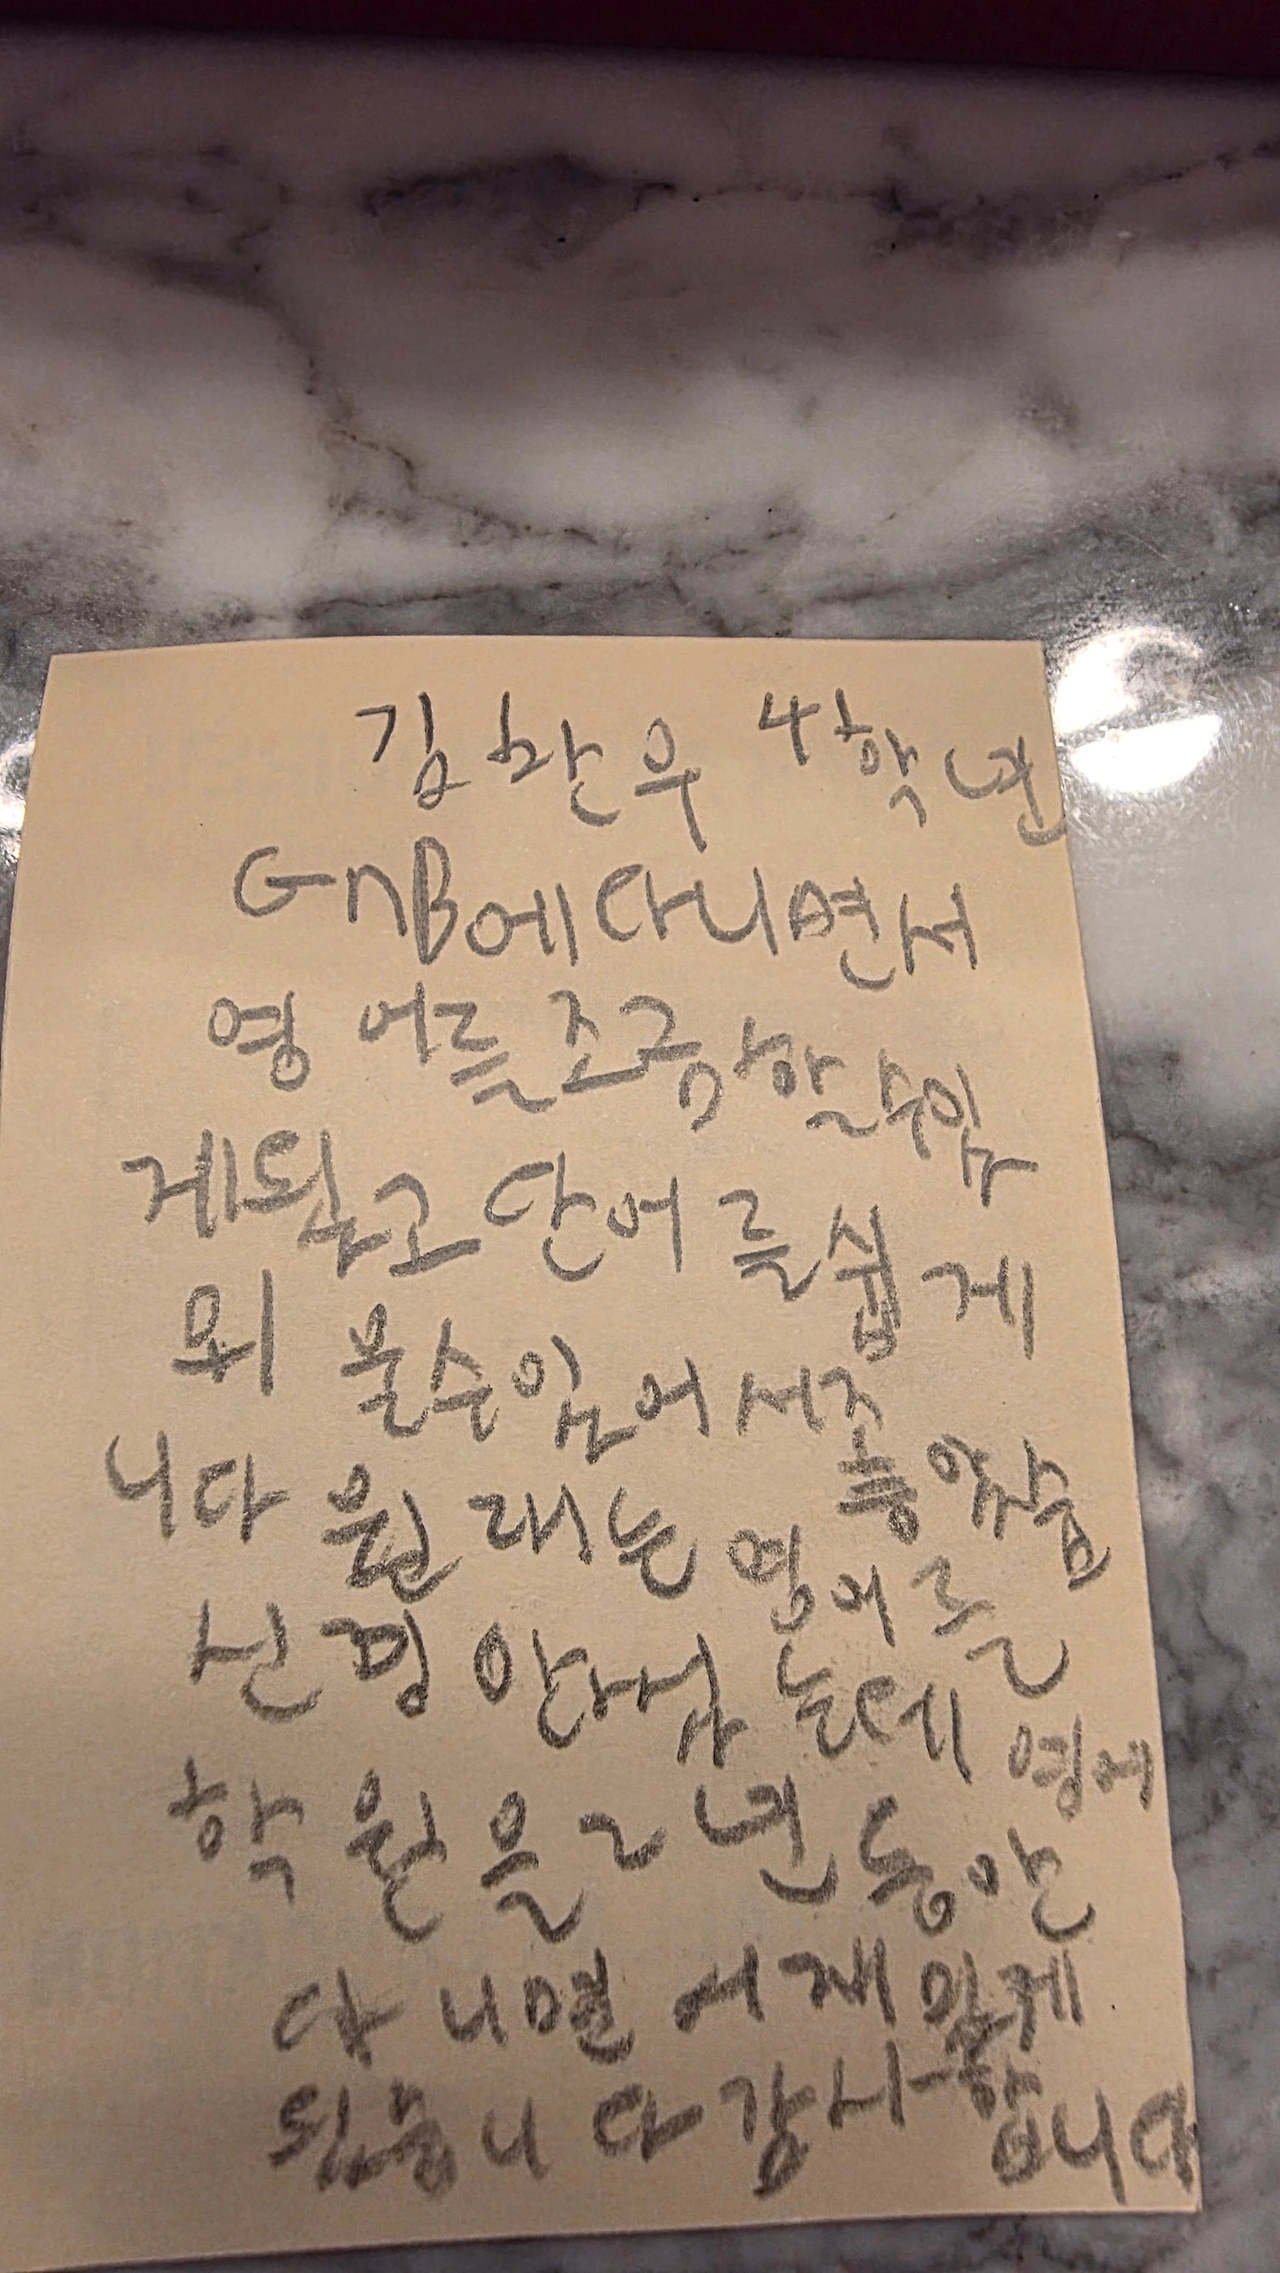 김환우 4학년
GnB에다니면서
영어를조금 할수있
게됬고 단어를쉽게
외울수있어서좋았습
니다 원래는 영어를
신경안썼는데 영어
학원을2년동안
다니면서재밌게
됬습니다감사합니다